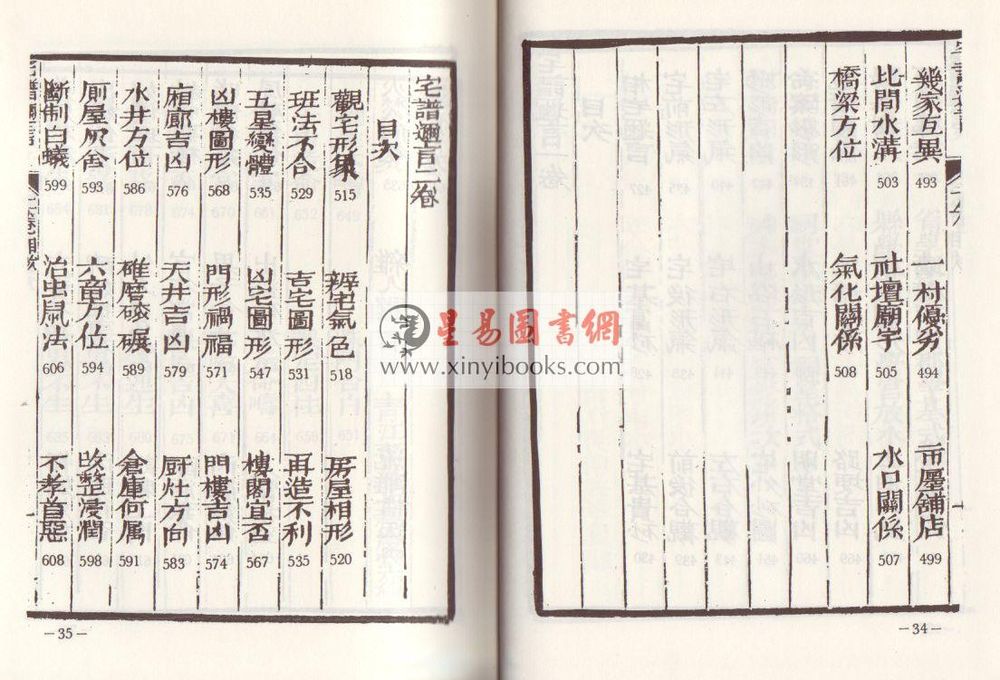 幾家互異 493 一村優劣 494 市廛舖店 499
比間水溝 503 社壇廟宇 505 水口關係 507
橋梁方位 氣化關係 508
—34—
宅譜邇言二卷
目次
觀宅形象 515 辨宅氣色 518 房屋相形 520
班法不合 529 吉宅圖形 531 再造不利 535
五星變體 535 凶宅圖形 547 樓閣宜否 567
凶樓圖形 568 門形禍福 571 門樓吉凶 574
廂廊吉凶 576 天井吉凶 579 厨灶方向 583
水井方位 586 碓磨 589 倉庫何属 591
厠屋灰舍 593 六畜方位 594 改整浸潤 598
斷制白蟻 599 治虫鼠法 606 不孝首惡 608
—35—
星易圖書網
www.xinyibooks.com